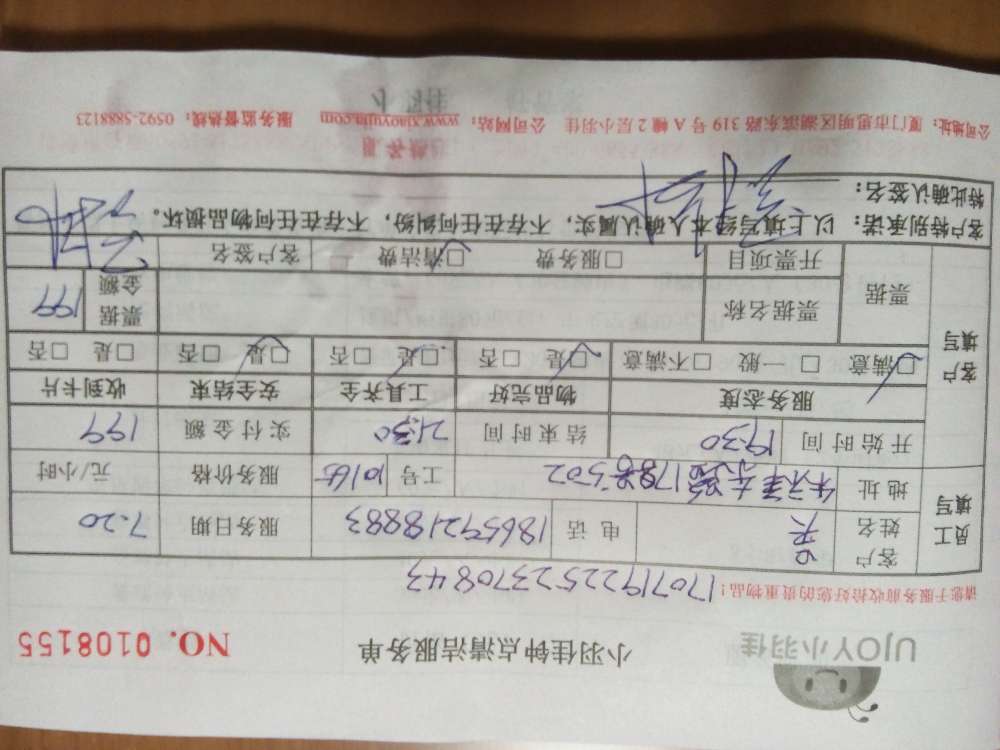 UJOY小羽佳 小羽佳钟点清洁服务单 NO. 0108155
请您于服务前收拾好您的贵重物品！ 1707192252370843
员工填写 客户姓名 电话 18659218883 服务日期 7.20
地址 502 工号 10165 服务价格 元/小时
开始时间 19:30 结束时间 21:30 实付金额 199
客户填写 服务态度 物品完好 工具齐全 安全结束 收到卡片
□满意 □一般 □不满意 □是 □否 □是 □否 □是 □否 □是 □否
票据 票据名称 票据金额 199
开票项目 □服务费 □清洁费 客户签名
客户特别承诺： 以上填写经本人确认属实，不存在任何纠纷，不存在任何物品损坏。
特此确认签名：
公司地址：厦门市思明区湖滨东路 319 号 A 幢 2 层小羽佳 公司网站：www.xiaoyujia.com 服务监督热线：0592-5888123